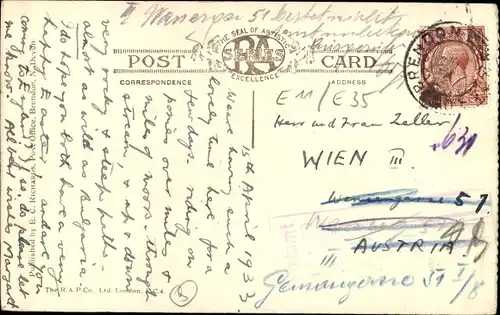 THE SEAL OF ARTISTIC EXCELLENCE
RA
SERIES
POST CARD
CORRESPONDENCE
ADDRESS
BRENDON
15th April 1933
We are having such a
lovely time here for a
few days, riding on
ponies over miles &
miles of moors - through
streams & up & down
very rocky & steep paths -
almost as wild as Bulgaria
I do hope you both have a very
happy Easter! and are you
coming to England? If so, do please let
me know. All best wishes Margaret
Published by E. C. Richards, Post Office, Brendon, N. Devon
The R.A.P. Co. Ltd London, E.C.4.
E 11/E 35
Herr und Frau Zeller
WIEN III.
57
AUSTRIA
III
51 I/8